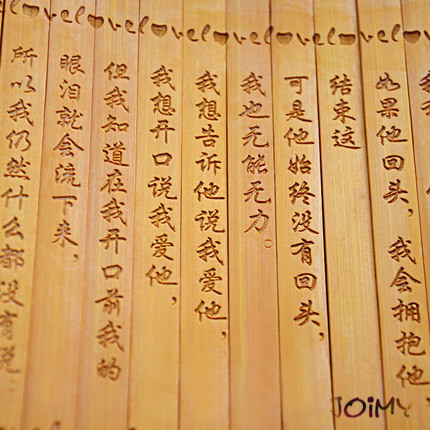 如果他回头，我会拥抱他
结束这
可是他始终没有回头，
我也无能无力。
我想告诉他说我爱他，
我想开口说我爱他，
但我知道在我开口前我的
眼泪就会流下来，
所以我仍然什么都没有说。
JOiMY